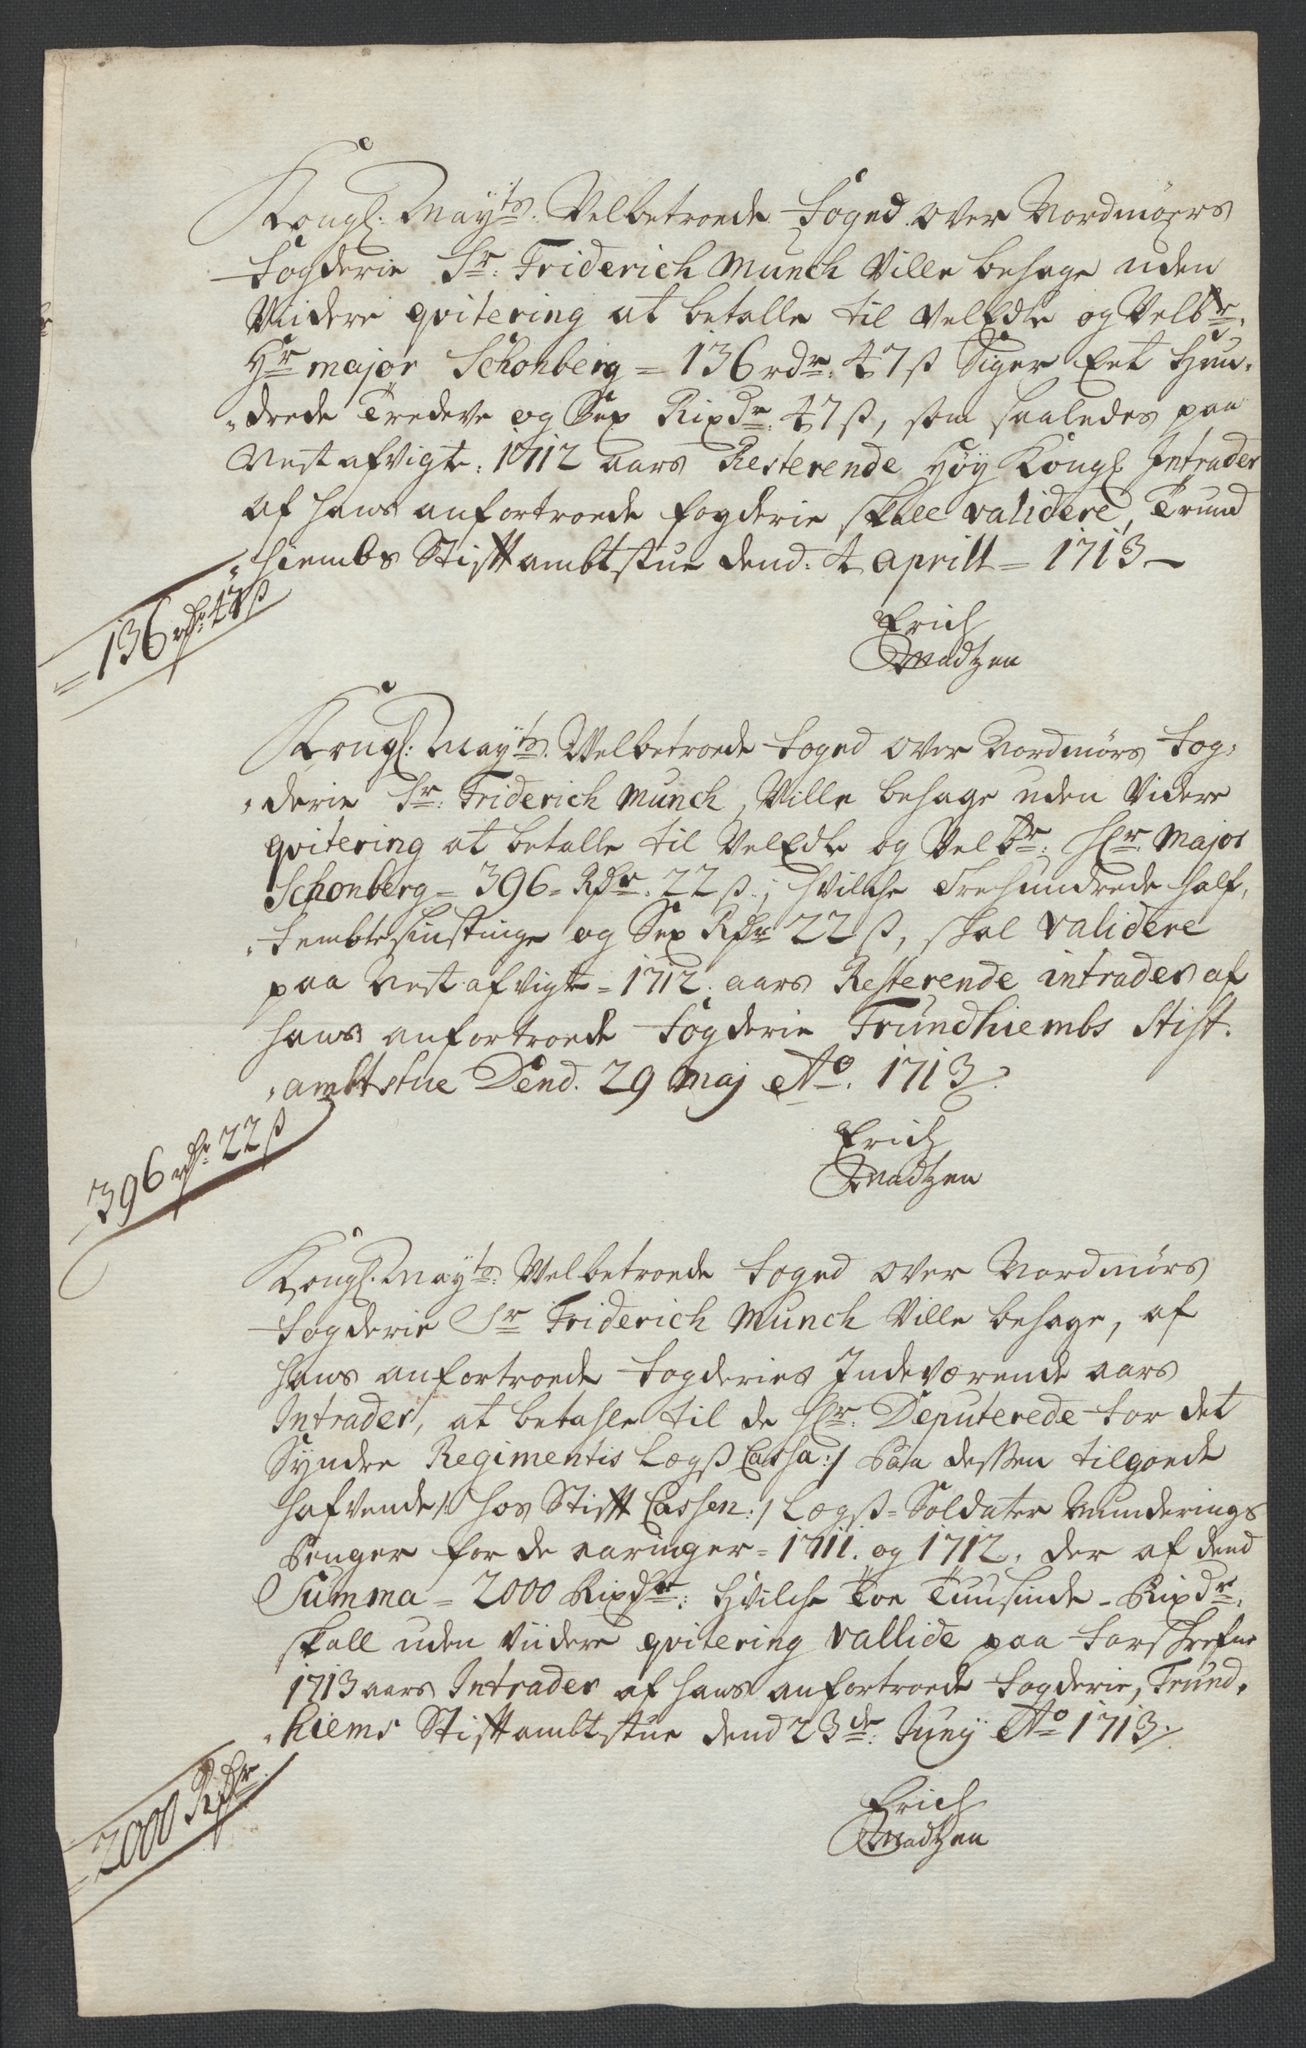 Kongl: Mayts. Velbetroede Foged over Nordmøers
Fogderie Sr: Friderich Munch Ville behage uden
Viidere qvitering at betalle til VelEdle og Velbr:
Hr major Schonberg = 136 rdr: 47 ß Siger Eet Hun-
drede Tredeve og Sex Rixdr: 47 ß, som saaledes paa
Nest afvigte: 1712 aars Resterende Høy Kongl Intrader
af hans anfortroede fogderie skall validere, Trund
hiembs Stiftambtstue dend: 4 aprill = 1713 –
= 136 rdr: 47 ß
Erich
Madtzen
Kongl: Mayts. Velbetroede Foged over Nordmørs Fog-
derie Sr: Friderich Munch, Ville behage uden Videre
qvitering at betalle til VelEdle og Velbr: Hr: Major
Schonberg = 396 = Rdr: 22 ß:, hvilche Trehundrede half-
fembtesindstiuge og Sex Rdr 22 ß, skal validere
paa Nest afvigte = 1712. aars Resterende intrader af
hans anfortroede Fogderie Trundhiembs Stift-
ambtstue Dend. 29 maj Ao. 1713.
396 rdr: 22 ß
Erich
Madtzen
Kongl. Mayts: Velbetroede Foged over Nordmørs
Fogderie Sr Friderich Munch Ville behage, af
hans anfortroede Fogderies Indeværende aars
Intrader, at betahle til de Hr: Deputerede for det
Syndre Regimentis Lægß Cassa :/ Paa dessen tilgoede
hafvende /: hos Stift Cassen :/ Lægß = Soldater Munderings
Penger for de aaringer = 1711. og 1712. der af dend
Summa = 2000 Rixdr: Hvilche Toe Tuusinde = Rixdr:
skall uden Viidere qvitering vallide paa forschrefne
1713 aars Intrader af hans anfortroede Fogderie, Trund-
hiems Stiftambtstue dend 23de: Junij Ao 1713.
= 2000 Rdr
Erich
Madtzen